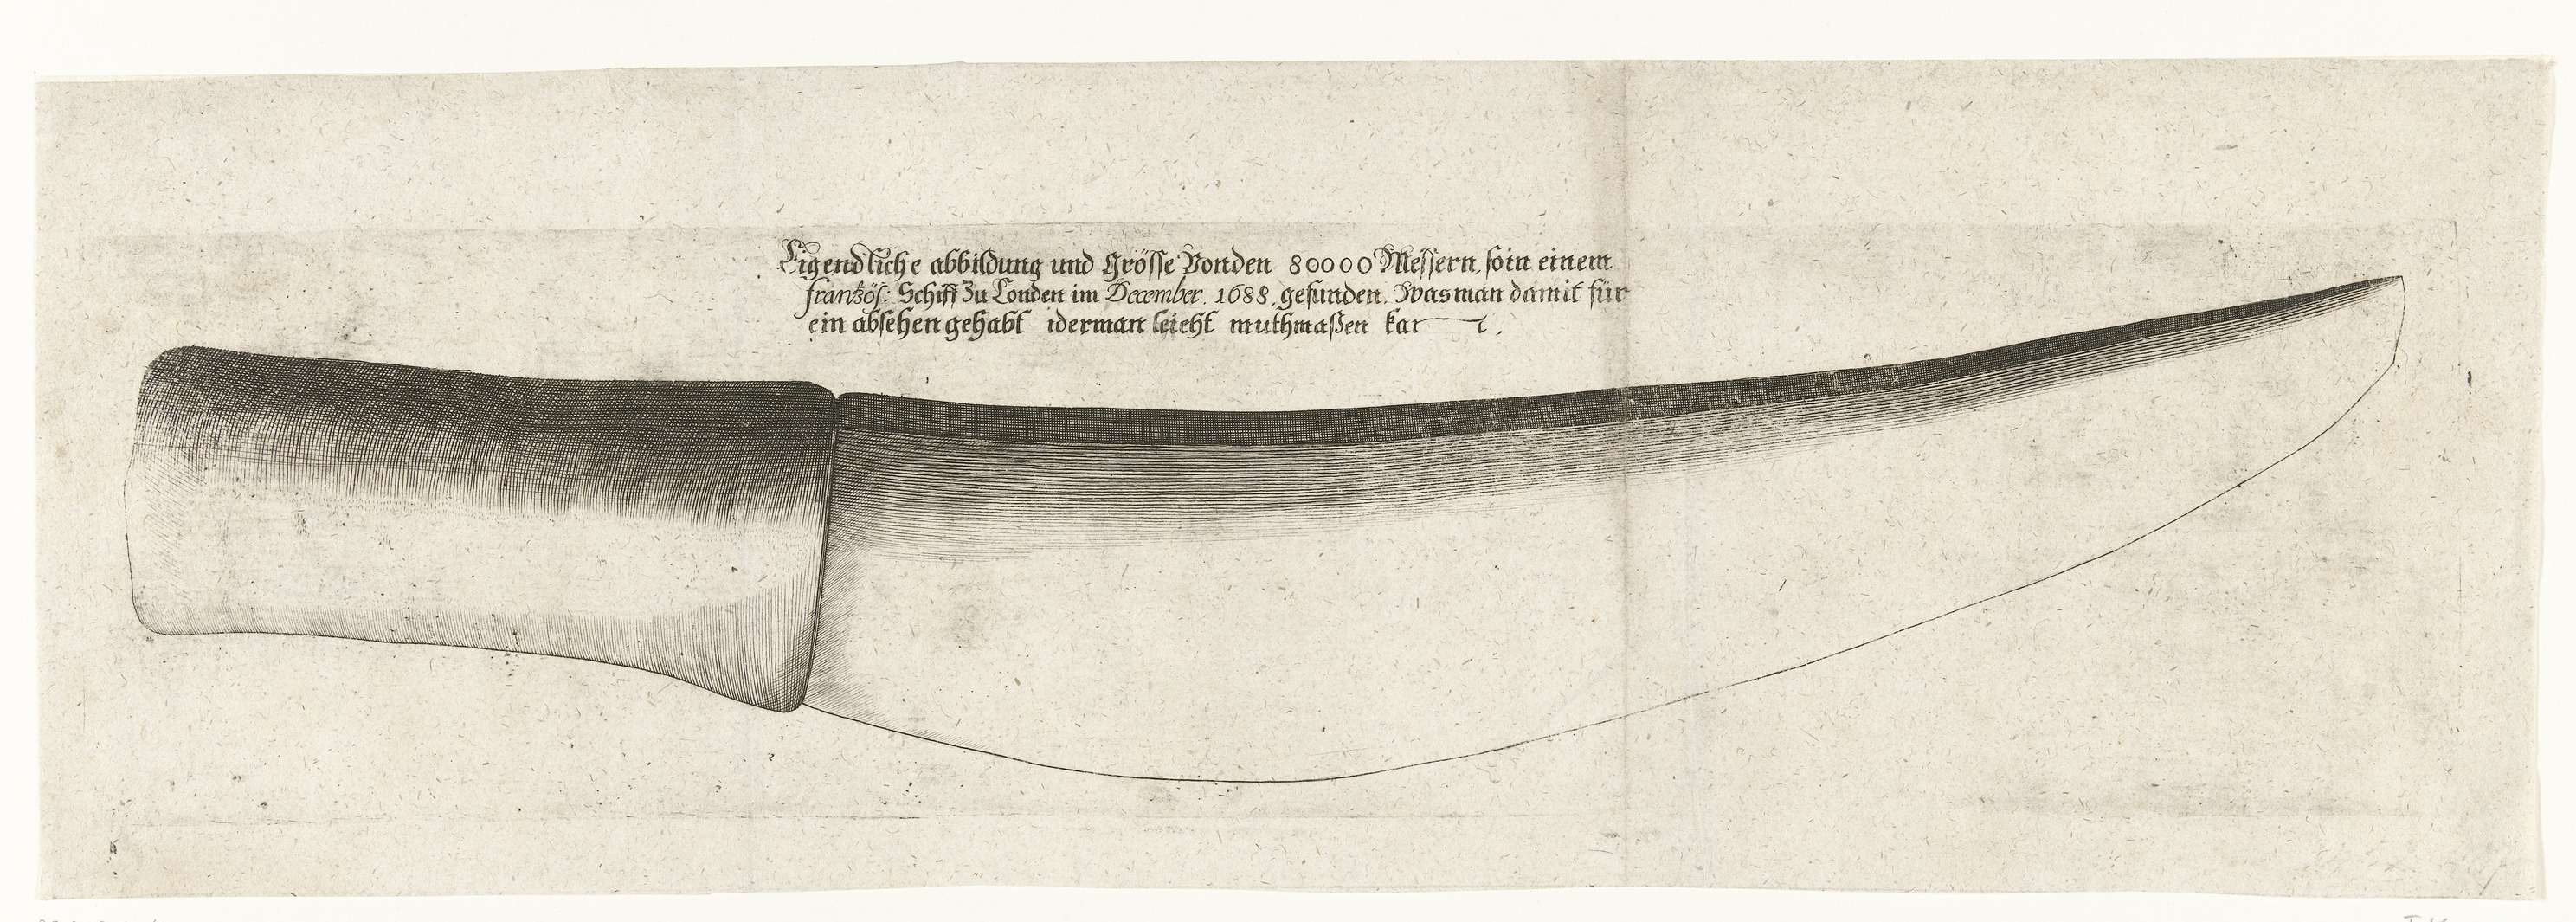 Eigendliche abbildung und Grösse Von den 80000 Messern, so in einem
frantzös: Schiff Zu Londen im December. 1688. gefunden. Was man damit für
ein absehen gehabt iderman leicht muthmaßen kan.